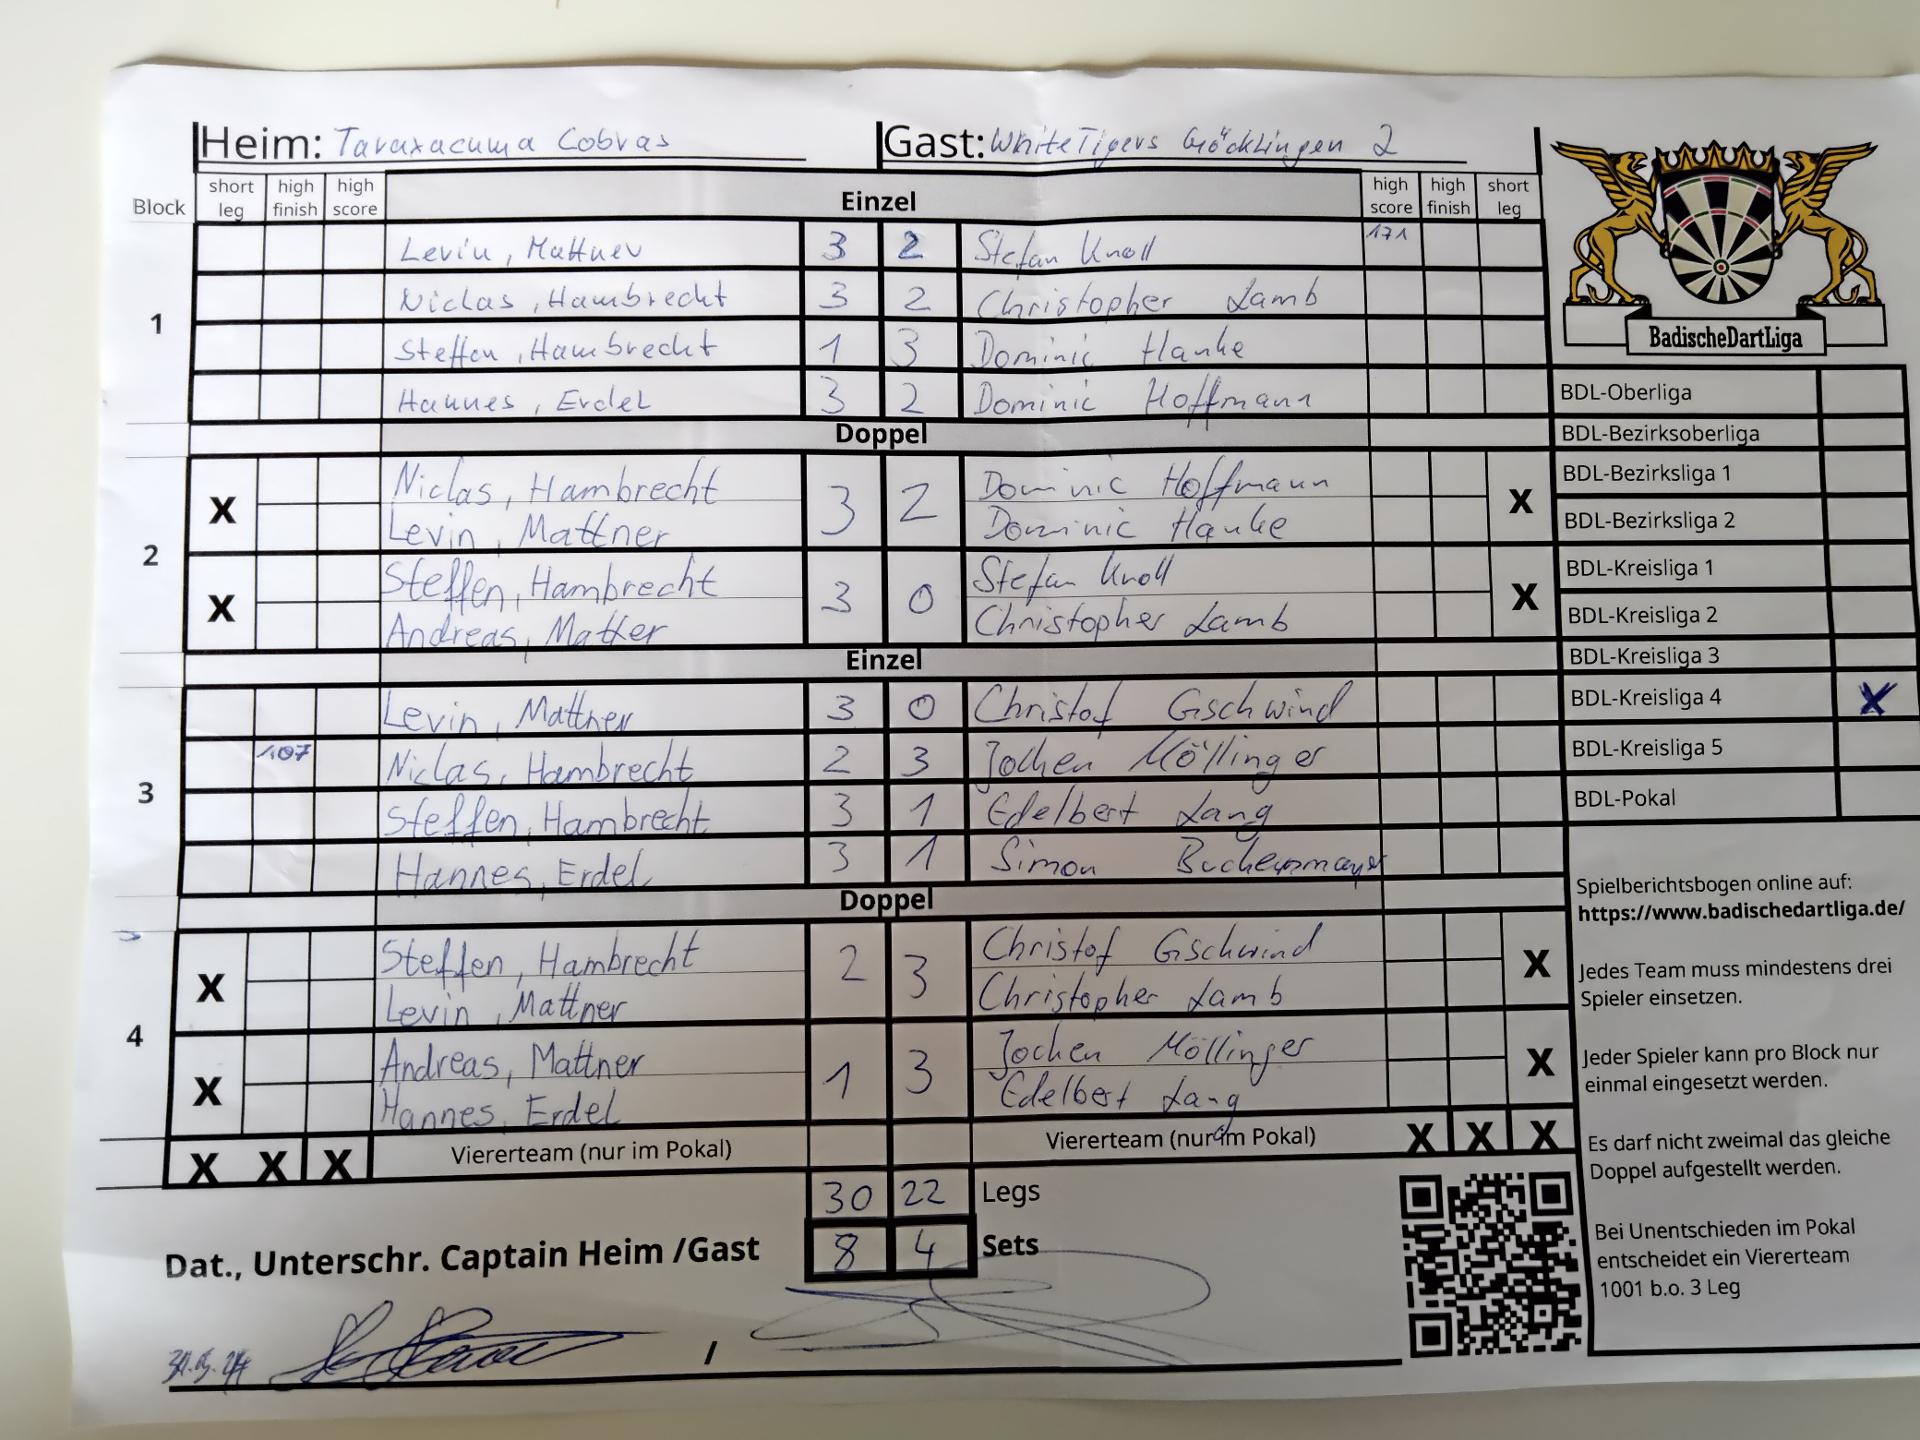 Heim: Taraxacuma Cobras Gast: WhiteTigers Göcklingen 2
Block short leg high finish high score Einzel high score high finish short leg
1
Levin, Mattner 3 2 Stefan Knoll 171
Niclas, Hambrecht 3 2 Christopher Lamb
Steffen, Hambrecht 1 3 Dominic Hanke
Hannes, Erdel 3 2 Dominic Hoffmann
Doppel
2
X Niclas, Hambrecht 3 2 Dominic Hoffmann X
Levin, Mattner Dominic Hanke
X Steffen, Hambrecht 3 0 Stefan Knoll X
Andreas, Christopher Lamb
Einzel
3
Levin, Mattner 3 0 Christof Gschwind
107 Niclas, Hambrecht 2 3 Jochen Möllinger
Steffen, Hambrecht 3 1 Edelbert Lang
Hannes, Erdel 3 1 Simon
Doppel
4
X Steffen, Hambrecht 2 3 Christof Gschwind X
Levin, Mattner Christopher Lamb
X Andreas, Mattner 1 3 Jochen Möllinger X
Hannes, Erdel Edelbert Lang
X X X Viererteam (nur im Pokal) Viererteam (nur im Pokal) X X X
30 22 Legs
Dat., Unterschr. Captain Heim /Gast 8 4 Sets
/
BadischeDartLiga
BDL-Oberliga
BDL-Bezirksoberliga
BDL-Bezirksliga 1
BDL-Bezirksliga 2
BDL-Kreisliga 1
BDL-Kreisliga 2
BDL-Kreisliga 3
BDL-Kreisliga 4 X
BDL-Kreisliga 5
BDL-Pokal
Spielberichtsbogen online auf:
https://www.badischedartliga.de/
Jedes Team muss mindestens drei
Spieler einsetzen.
Jeder Spieler kann pro Block nur
einmal eingesetzt werden.
Es darf nicht zweimal das gleiche
Doppel aufgestellt werden.
Bei Unentschieden im Pokal
entscheidet ein Viererteam
1001 b.o. 3 Leg